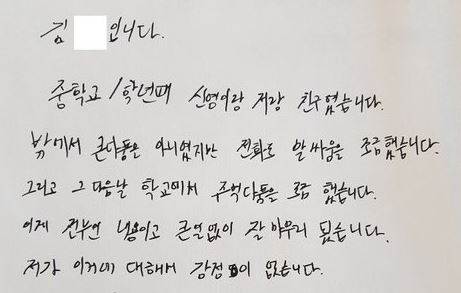 김 입니다.
중학교 1학년때 신영이랑 저랑 친구였습니다.
밖에서 큰다툼은 아니였지만 전화로 말싸움을 조금 했습니다.
그리고 그 다음날 학교에서 주먹다툼을 조금 했습니다.
이게 전부인 내용이고 큰일없이 잘 마무리 됬습니다.
저감 이거에 대해서 감정이 없습니다.